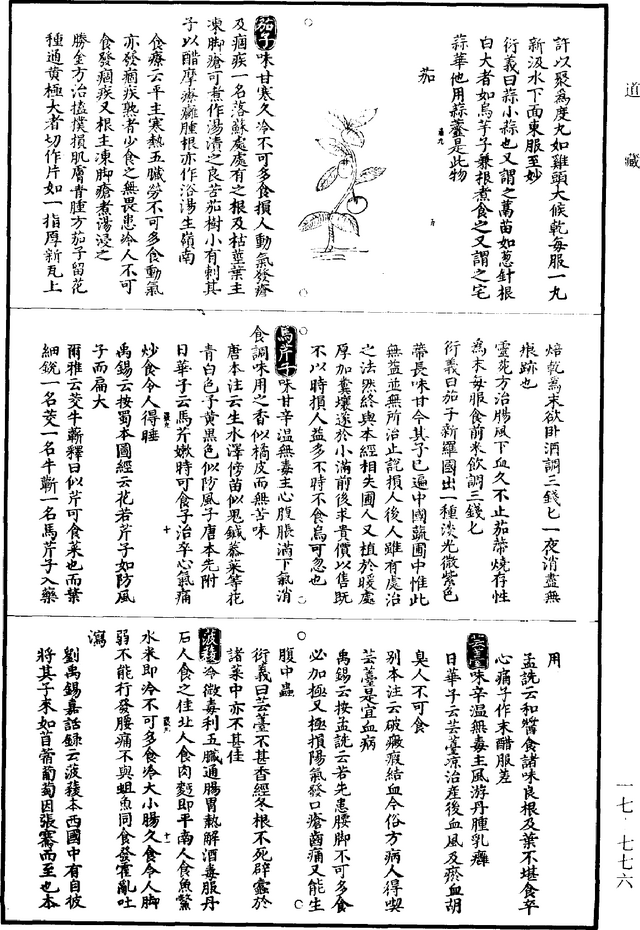 道藏
許以聚為度丸如雞頭大候乾每服一九
新汲水下面東服至妙
衍義曰蒜小蒜也又謂之䔉苗如葱針根
白大者如烏芋子兼根煮食之又謂之宅
蒜華他用蒜虀是此物
茄
茄子味甘寒久冷不可多食損人動氣發瘡
及痼疾一名落蘇處處有之根及枯莖葉主
凍脚瘡可煮作湯漬之良苦茄樹小有刺其
子以醋摩療癰腫根亦作浴湯生嶺南
食療云平主寒熱五臟勞不可多食動氣
亦發痼疾熟者少食之無畏患冷人不可
食發痼疾又根主凍脚瘡煮湯浸之
勝金方治磕撲損肌膚青腫方茄子留花
種通黄極大者切作片如一指厚新瓦上
焙乾為末欲卧酒調三錢匕一夜消盡無
痕跡也
靈苑方治腸風下血久不止茄蒂燒存性
為末每服食前米飲調三錢匕
衍義曰茄子新羅國出一種淡光微紫色
蒂長味甘今其子已遍中國蔬圃中惟此
無益並無所治止說損人後人雖有處治
之法然終與本經相失圃人又植於暖處
厚加糞壤遂於小滿前後求貴價以售既
不以時損人益多不時不食烏可忽也
馬芹子味甘辛温無毒主心腹脹滿下氣消
食調味用之香似橘皮而無苦味
唐本注云生水澤傍苗似鬼鍼菾菜等花
青白色子黄黑色似防風子唐本先附
日華子云馬芹嫩時可食子治卒心氣痛
炒食令人得睡
禹錫云按蜀本圖經云花若芹子如防風
子而扁大
爾雅云茭牛蘄釋曰似芹可食菜也而葉
細銳一名茭一名牛蘄一名馬芹子入藥
用
孟詵云和醬食諸味良根及葉不堪食卒
心痛子作末醋服差
芸薹味辛温無毒主風游丹腫乳癰
日華子云芸薹涼治產後血風及瘀血胡
臭人不可食
别本注云破癥瘕結血今俗方病人得喫
芸薹是宜血病
禹錫云按孟詵云若先患腰脚不可多食
必加極又極損陽氣發口瘡齒痛又能生
腹中蟲
衍義曰芸薹不甚香經冬根不死辟蠹於
諸菜中亦不甚佳
菠薐冷微毒利五臟通腸胃熱解酒毒服丹
石人食之佳北人食肉麪即平南人食魚鱉
水米即冷不可多食冷大小腸久食令人脚
弱不能行發腰痛不與䱇魚同食發霍亂吐
瀉
劉禹錫嘉話錄云菠薐本西國中有自彼
將其子來如苜蓿葡萄因張騫而至也本
一七·七七六